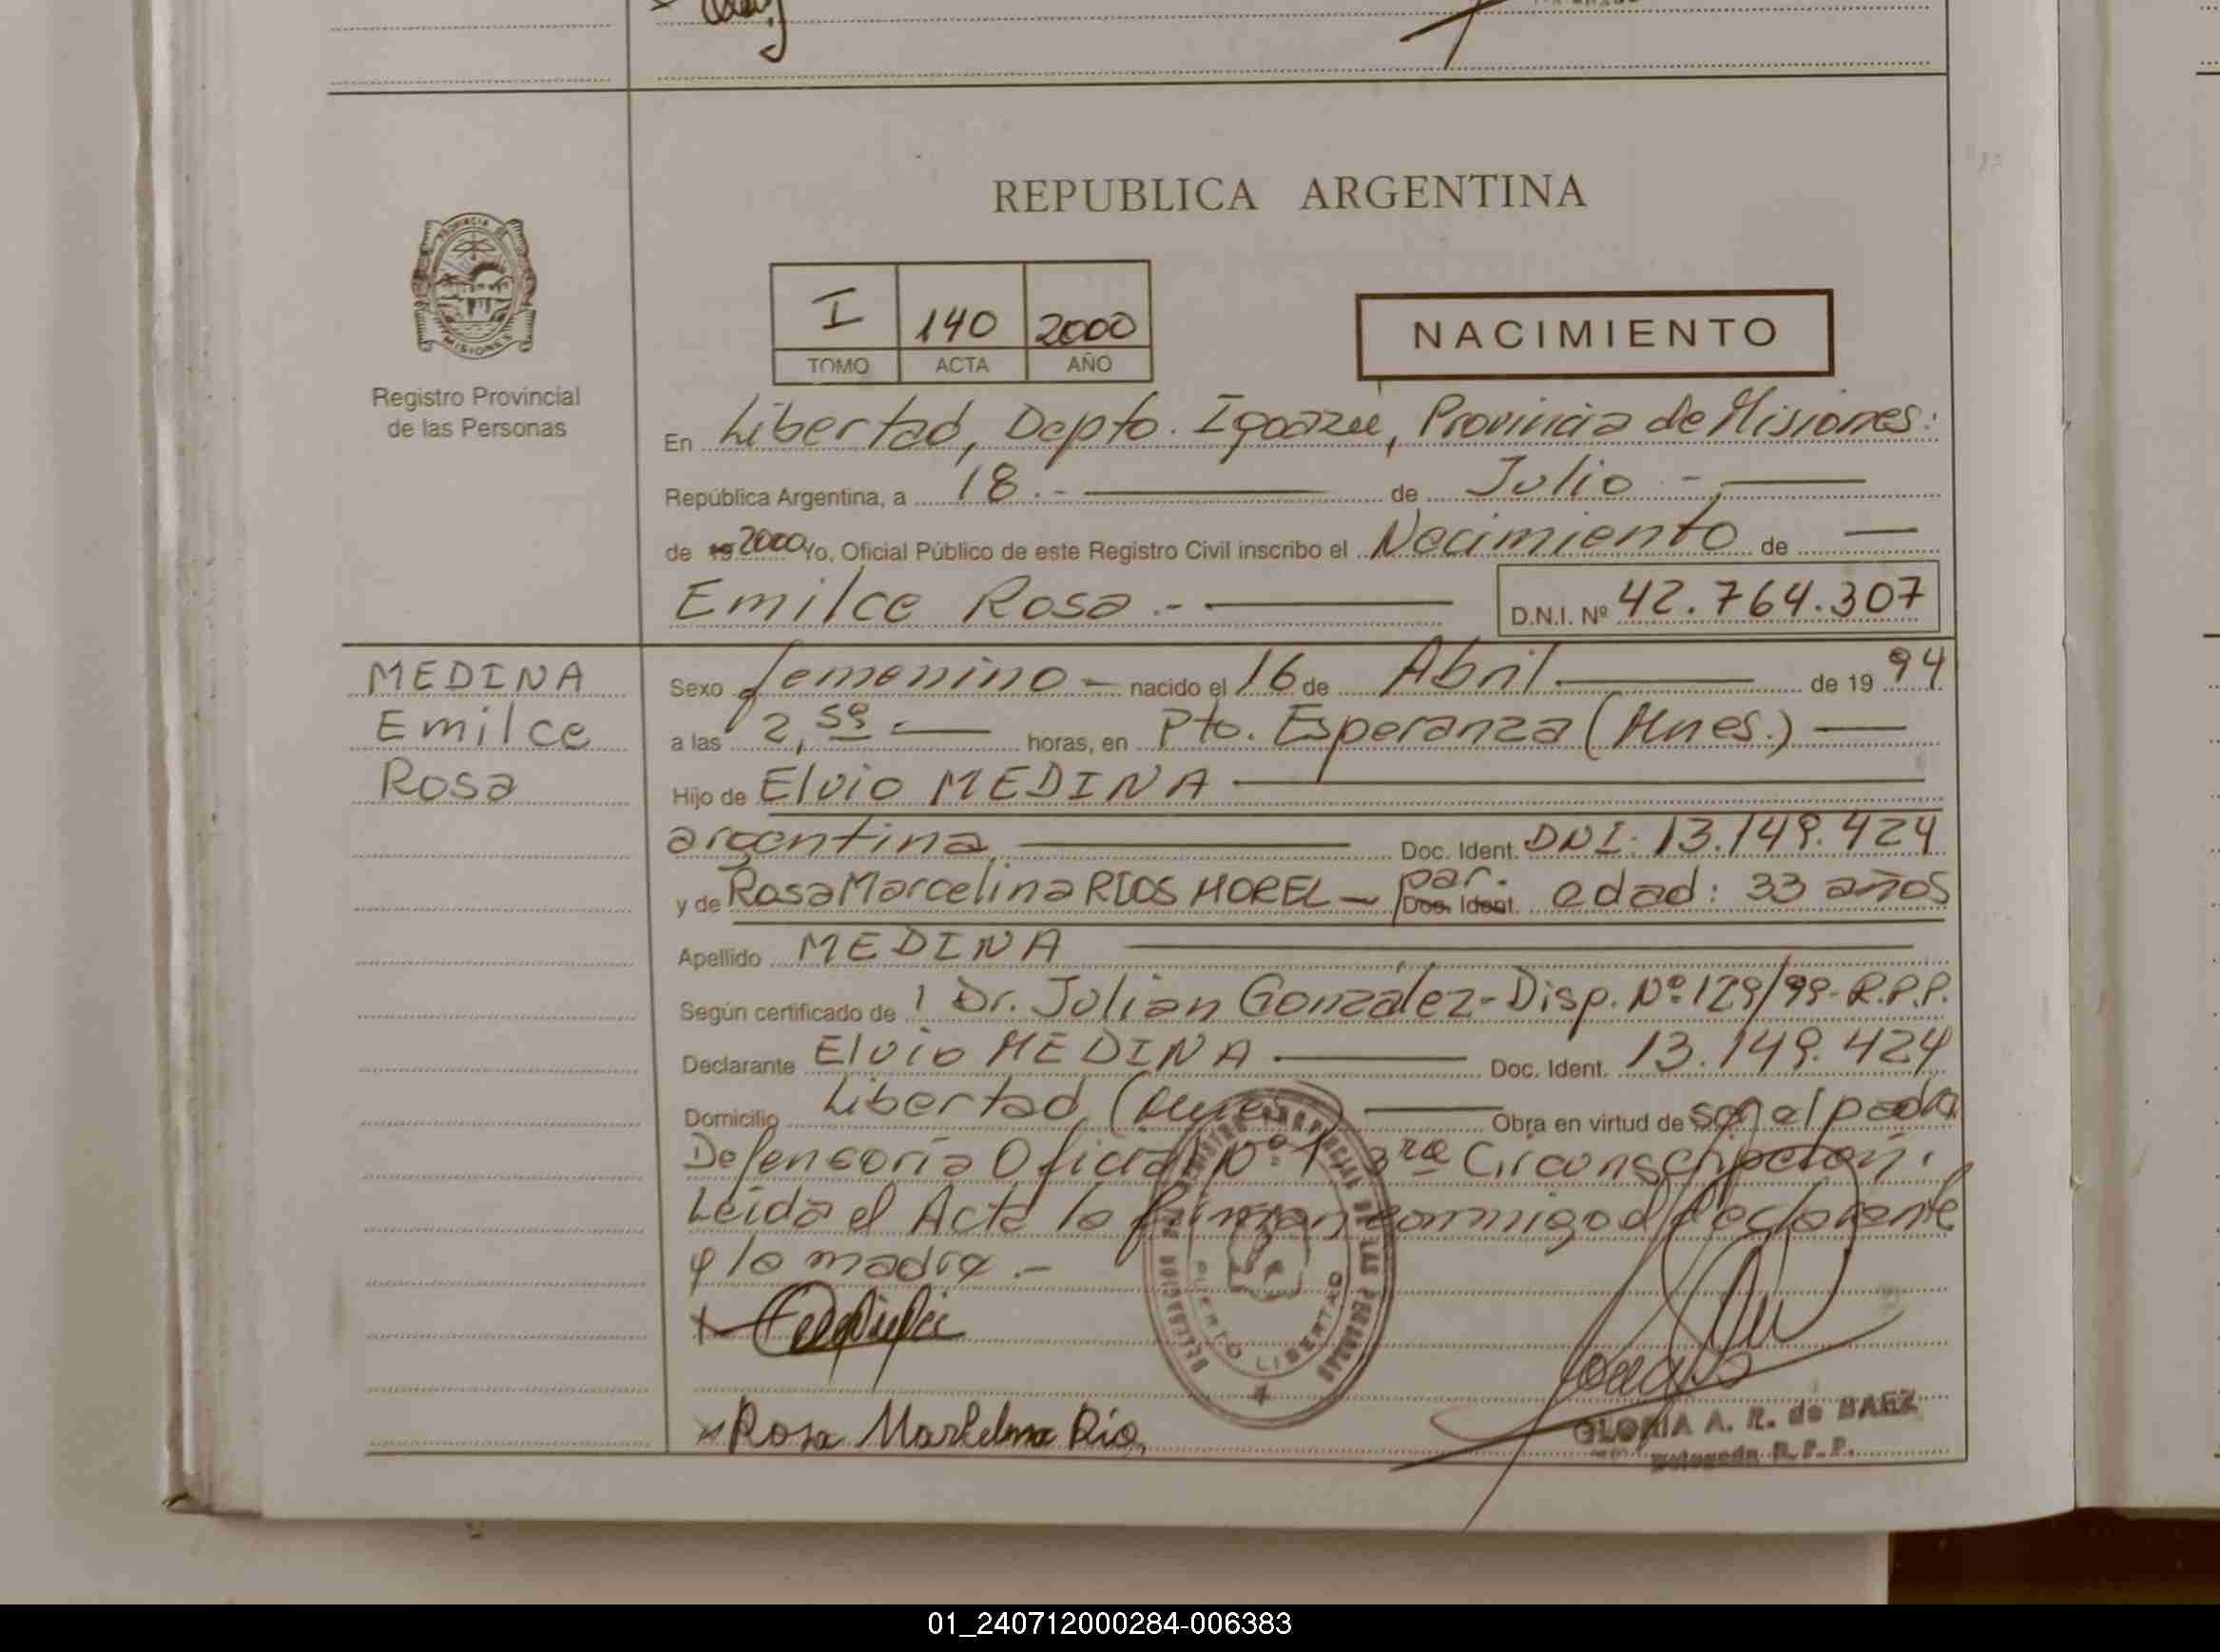 REPUBLICA ARGENTINA
PROVINCIA DE
MISIONES
Registro Provincial
de las Personas
I 140 2000
TOMO ACTA AÑO
NACIMIENTO
En Libertad, Depto. Igoazu, Provincia de Misiones:
República Argentina, a 18.- de Julio -
de 19 2000 Yo, Oficial Público de este Registro Civil inscribo el Nacimiento de
Emilce Rosa.-
D.N.I. Nº 42.764.307
MEDINA
Emilce
Rosa
Sexo femenino - nacido el 16 de Abril de 19 94
a las 2,50 horas, en Pto. Esperanza (Mnes.)
Hijo de Elvio MEDINA
argentina Doc. Ident. DNI: 13.149.424
y de Rosa Marcelina RIOS MOREL - par. Doc. Ident. edad: 33 años
Apellido MEDINA
Según certificado de Dr. Julian González - Disp. Nº: 129/99 - R.P.P.
Declarante Elvio MEDINA Doc. Ident. 13.149.424
Domicilio Libertad (Mnes) Obra en virtud de ser el padre
Defensoría Oficial Nº 1 3ra Circunscripción.
Leída el Acta la firman conmigo el declarente
y la madre.-
PUERTO LIBERTAD
x Rosa Marcelina Rio
GLORIA A. R. de BAEZ
Delegada R.P.P.
01_240712000284-006383